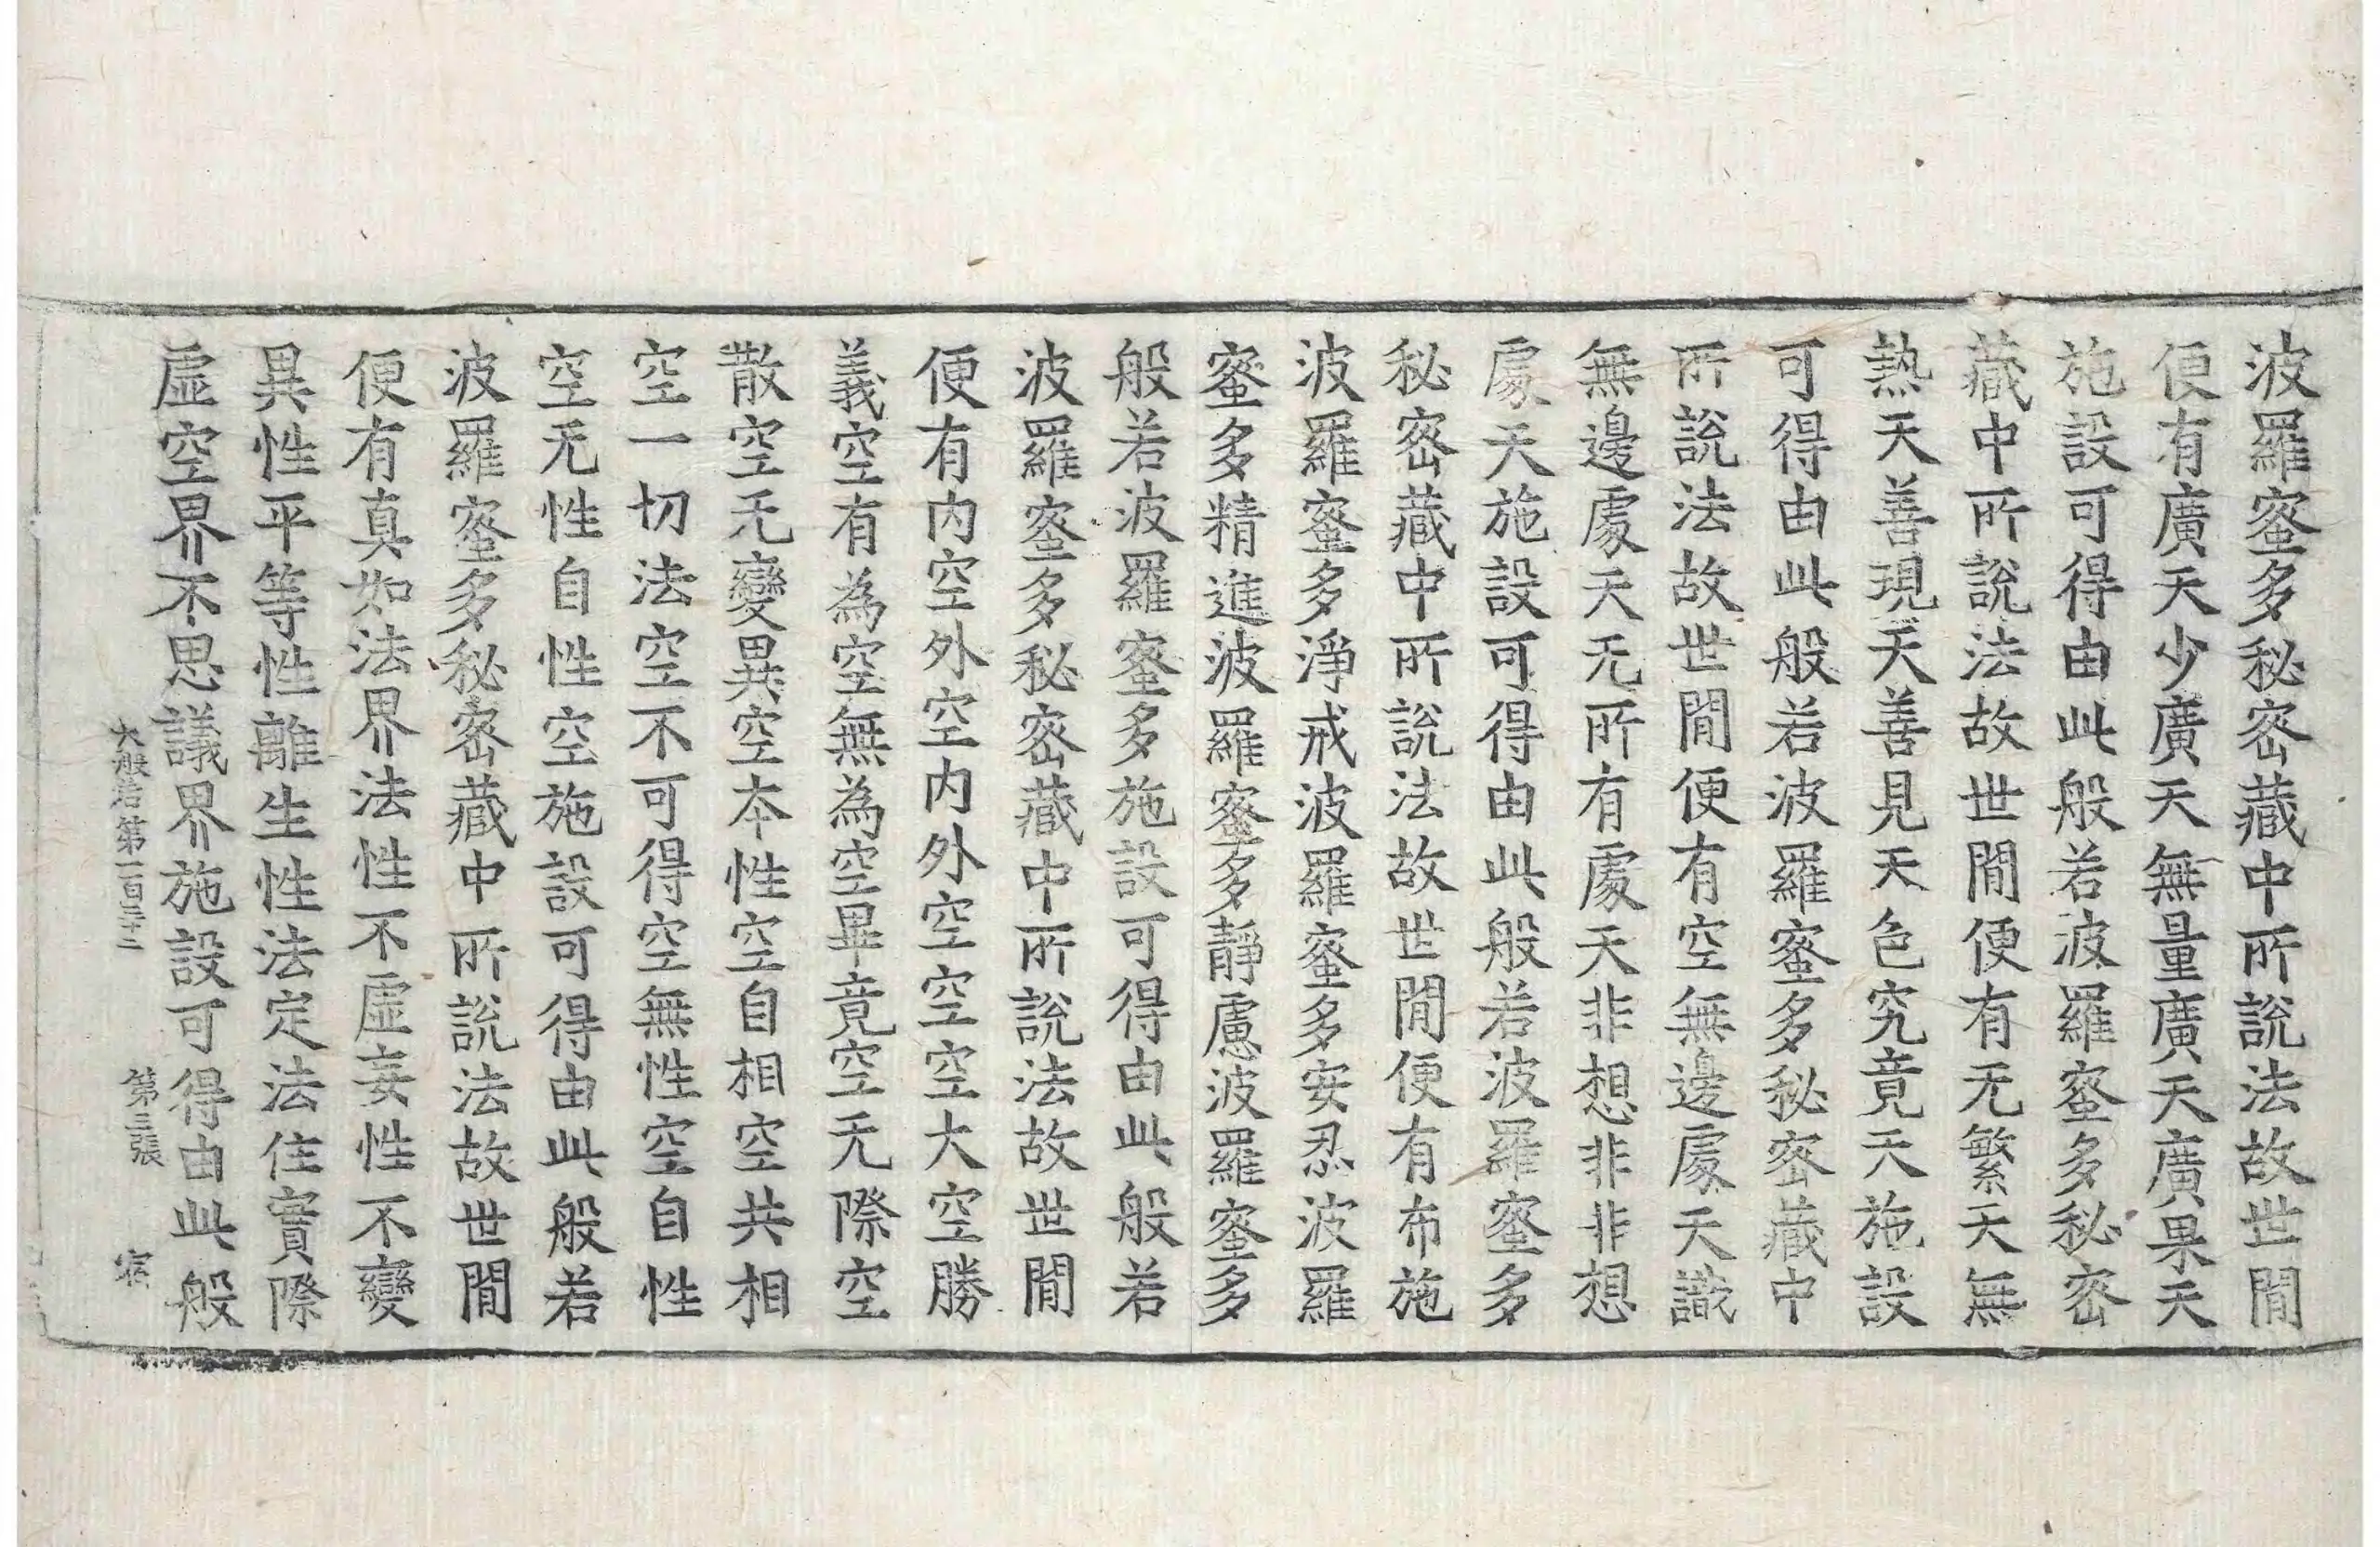 波羅蜜多秘密藏中所說法故世間
便有廣天少廣天無量廣天廣果天
施設可得由此般若波羅蜜多秘密
藏中所說法故世間便有无繁天無
熱天善現天善見天色究竟天施設
可得由此般若波羅蜜多秘密藏中
所說法故世間便有空無邊處天識
無邊處天无所有處天非想非非想
處天施設可得由此般若波羅蜜多
秘密藏中所說法故世間便有布施
波羅蜜多淨戒波羅蜜多安忍波羅
蜜多精進波羅蜜多靜慮波羅蜜多
般若波羅蜜多施設可得由此般若
波羅蜜多秘密藏中所說法故世間
便有內空外空內外空空空大空勝
義空有為空無為空畢竟空无際空
散空无變異空本性空自相空共相
空一切法空不可得空無性空自性
空无性自性空施設可得由此般若
波羅蜜多秘密藏中所說法故世間
便有真如法界法性不虛妄性不變
異性平等性離生性法定法住實際
虛空界不思議界施設可得由此般
大般若第一百三十二 第三張